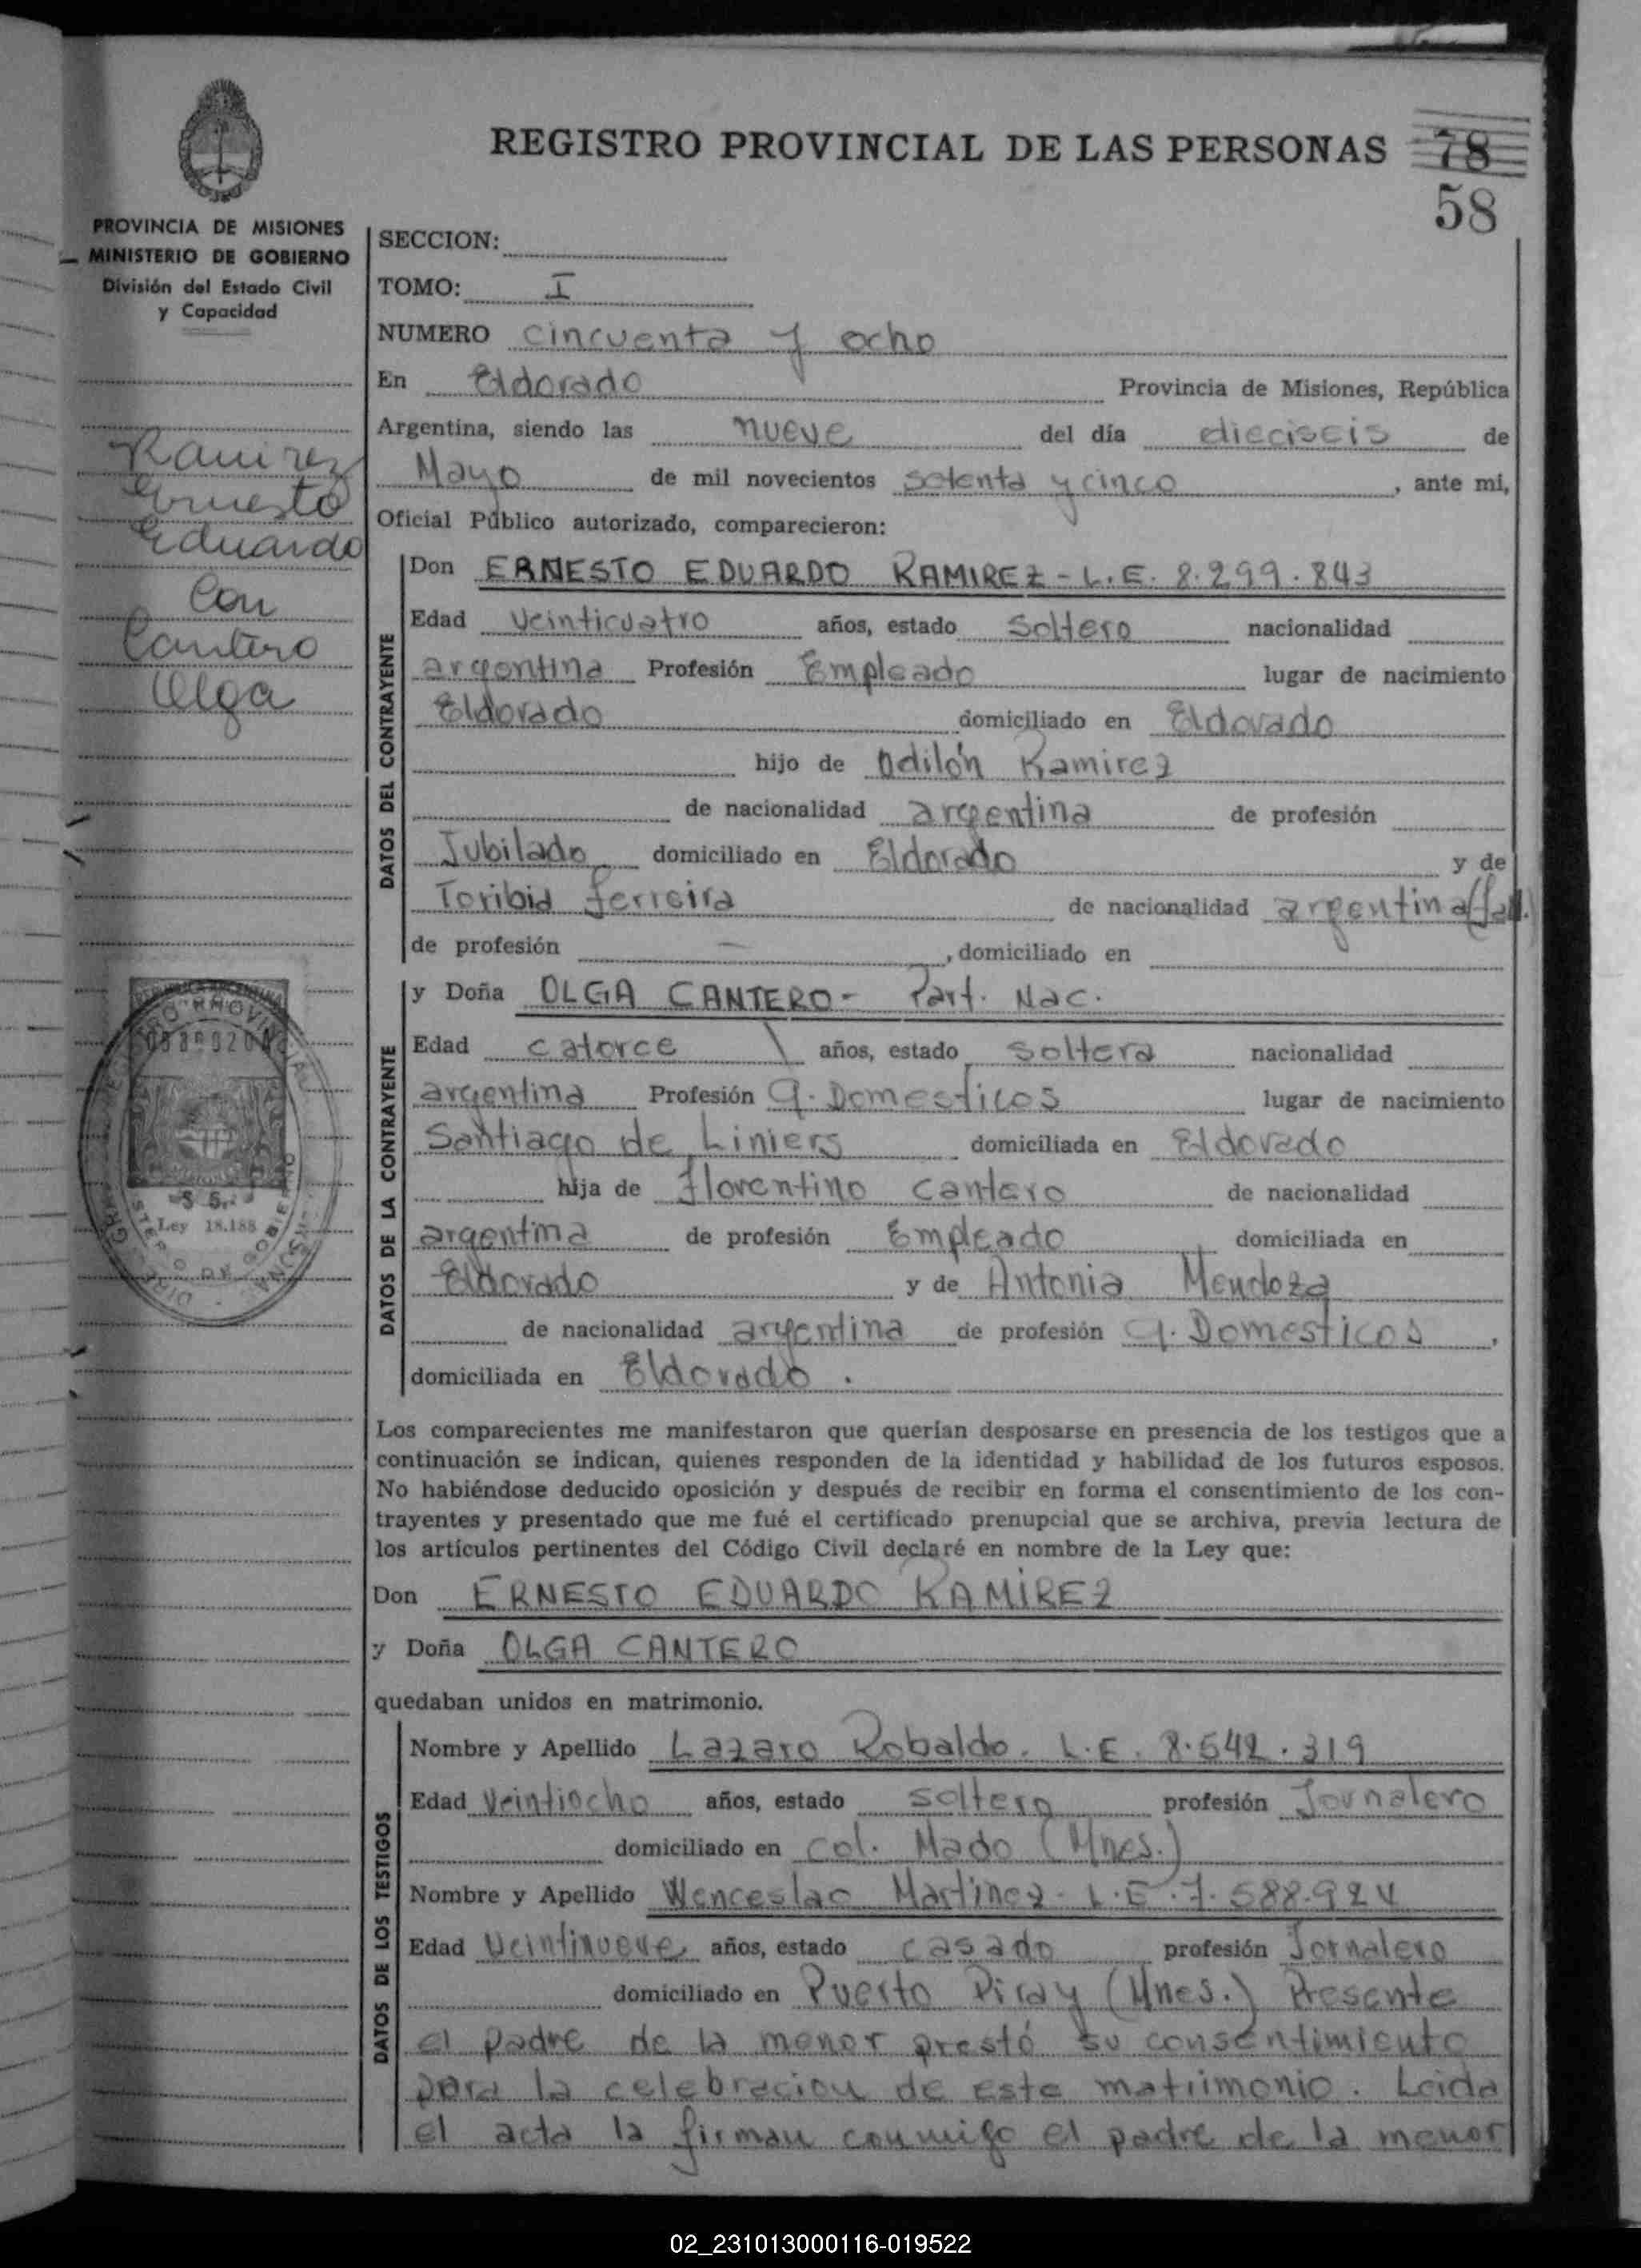 REGISTRO PROVINCIAL DE LAS PERSONAS 78
58
PROVINCIA DE MISIONES
MINISTERIO DE GOBIERNO
División del Estado Civil
y Capacidad
Ramirez
Ernesto
Eduardo
Con
Cantero
Olga
$ 5,-
Ley 18.188
SECCION:
TOMO: I
NUMERO cincuenta y ocho
En Eldorado Provincia de Misiones, República
Argentina, siendo las nueve del día dieciseis de
Mayo de mil novecientos setenta y cinco, ante mi,
Oficial Público autorizado, comparecieron:
DATOS DEL CONTRAYENTE
Don ERNESTO EDUARDO RAMIREZ - L.E. 8.299.843
Edad Veinticuatro años, estado Soltero nacionalidad
argentina Profesión Empleado lugar de nacimiento
Eldorado domiciliado en Eldorado
hijo de Odilón Ramirez
de nacionalidad argentina de profesión
Jubilado domiciliado en Eldorado y de
Toribia Ferreira de nacionalidad argentina (fall.)
de profesión — , domiciliado en
DATOS DE LA CONTRAYENTE
y Doña OLGA CANTERO - Part. Nac.
Edad catorce \ años, estado soltera nacionalidad
argentina Profesión q. Domesticos lugar de nacimiento
Santiago de Liniers domiciliada en Eldorado
hija de Florentino Cantero de nacionalidad
argentina de profesión Empleado domiciliada en
Eldorado y de Antonia Mendoza
de nacionalidad argentina de profesión q. Domesticos ,
domiciliada en Eldorado .
Los comparecientes me manifestaron que querían desposarse en presencia de los testigos que a
continuación se indican, quienes responden de la identidad y habilidad de los futuros esposos.
No habiéndose deducido oposición y después de recibir en forma el consentimiento de los con-
trayentes y presentado que me fué el certificado prenupcial que se archiva, previa lectura de
los artículos pertinentes del Código Civil declaré en nombre de la Ley que:
Don ERNESTO EDUARDO RAMIREZ
y Doña OLGA CANTERO
quedaban unidos en matrimonio.
DATOS DE LOS TESTIGOS
Nombre y Apellido Lazaro Robaldo. L.E. 8.542.319
Edad Veintiocho años, estado soltero profesión Jornalero
domiciliado en Col. Mado (Mnes.)
Nombre y Apellido Wenceslao Martinez - L.E. 7.588.924
Edad Veintinueve años, estado casado profesión Jornalero
domiciliado en Puerto Piray (Mnes.) Presente
el padre de la menor prestó su consentimiento
para la celebracion de este matrimonio. Leida
el acta la firman conmigo el padre de la menor
02_231013000116-019522